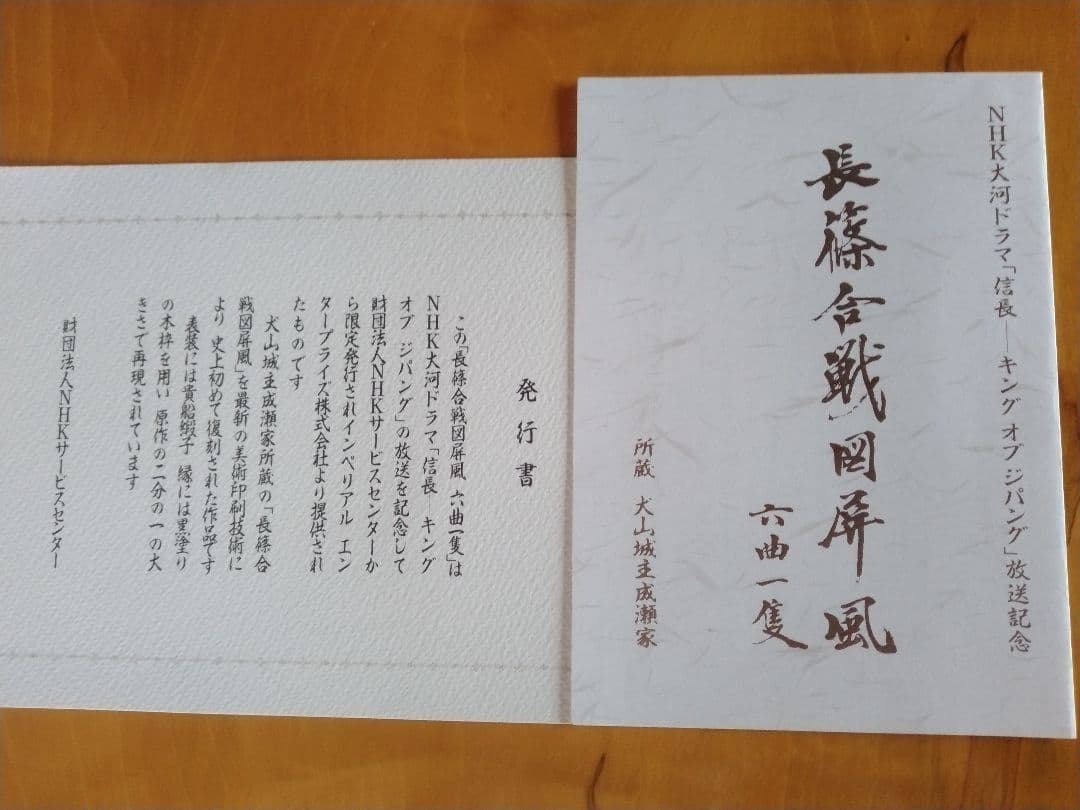 NHK大河ドラマ「信長――キング オブ ジパング」放送記念
長篠合戦図屏風
六曲一隻
所蔵 犬山城主成瀬家
発行書
この「長篠合戦図屏風 六曲一隻」は
NHK大河ドラマ「信長――キング
オブ ジパング」の放送を記念して
財団法人NHKサービスセンターか
ら限定発行されインペリアル エン
タープライズ株式会社より提供され
たものです
犬山城主成瀬家所蔵の「長篠合
戦図屏風」を最新の美術印刷技術に
より 史上初めて復刻された作品です
表装には貴船緞子 縁には黒塗り
の木枠を用い 原作の二分の一の大
きさで再現されています
財団法人NHKサービスセンター